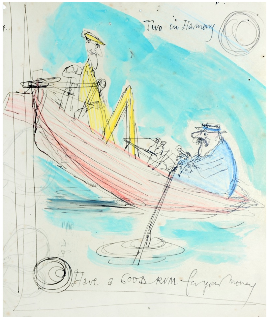 Two in Harmony
Have a GOOD ROW for your money